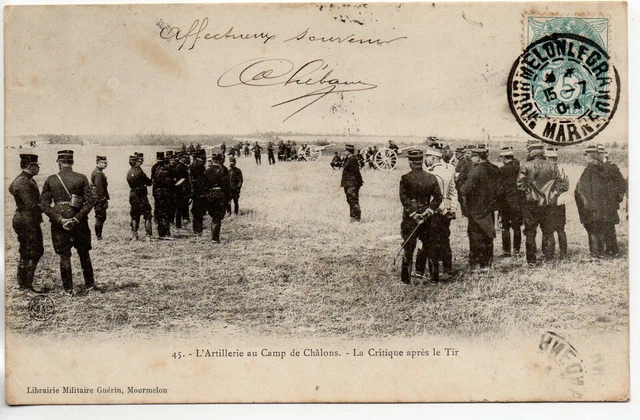 Affectueux souvenir
MOURMELON LE GRAND
15 - 7
04
MARNE
45. - L'Artillerie au Camp de Châlons. - La Critique après le Tir
Librairie Militaire Guérin, Mourmelon